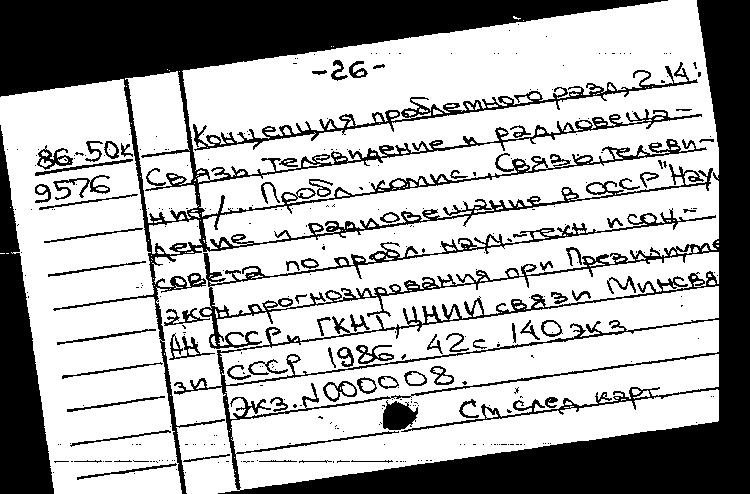 -26-
Концепция проблемного разд. 2.14:
86-50к
Связь, телевидение и радиовеща-
9576
ние/... Пробл. комис. „Связь, телеви-
дение и радиовещание в СССР" Науч.
совета по пробл. науч.-техн. и соц.-
экон. прогнозирования при Президиуме
АН СССР и ГКНТ, ЦНИИ связи Минсвя-
зи СССР. 1986. 42с. 140 экз.
Экз. N000008.
См. след. карт.